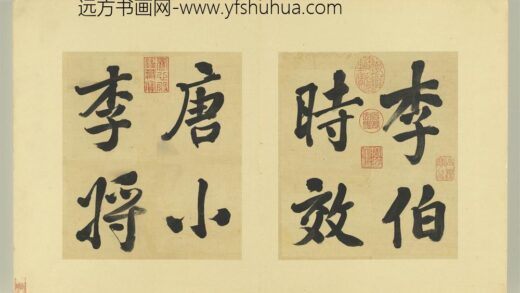 远方书画网-www.yfshuhua.com
李伯
時效
唐小
李將